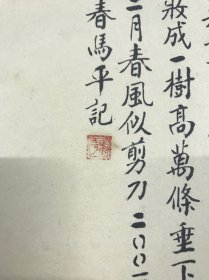 妝成一樹高萬條垂下
二月春風似剪刀二〇〇
春馬平記